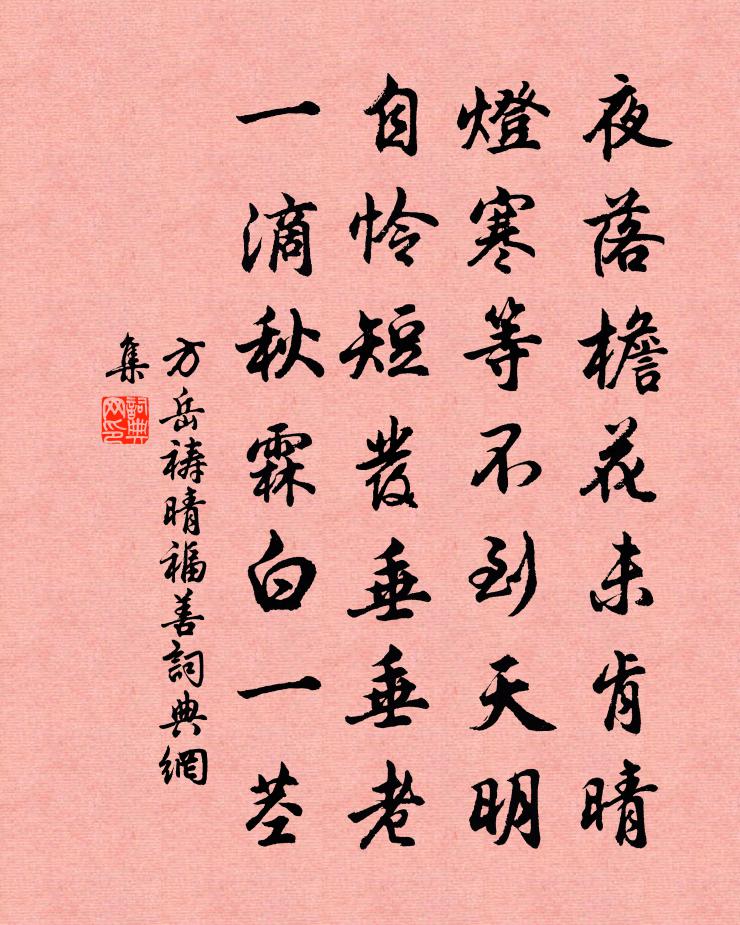 夜落檐花未肯晴
燈寒等不到天明
自怜短發垂垂老
一滴秋霖白一茎
方岳禱晴福善詞典網
集
詞典網印